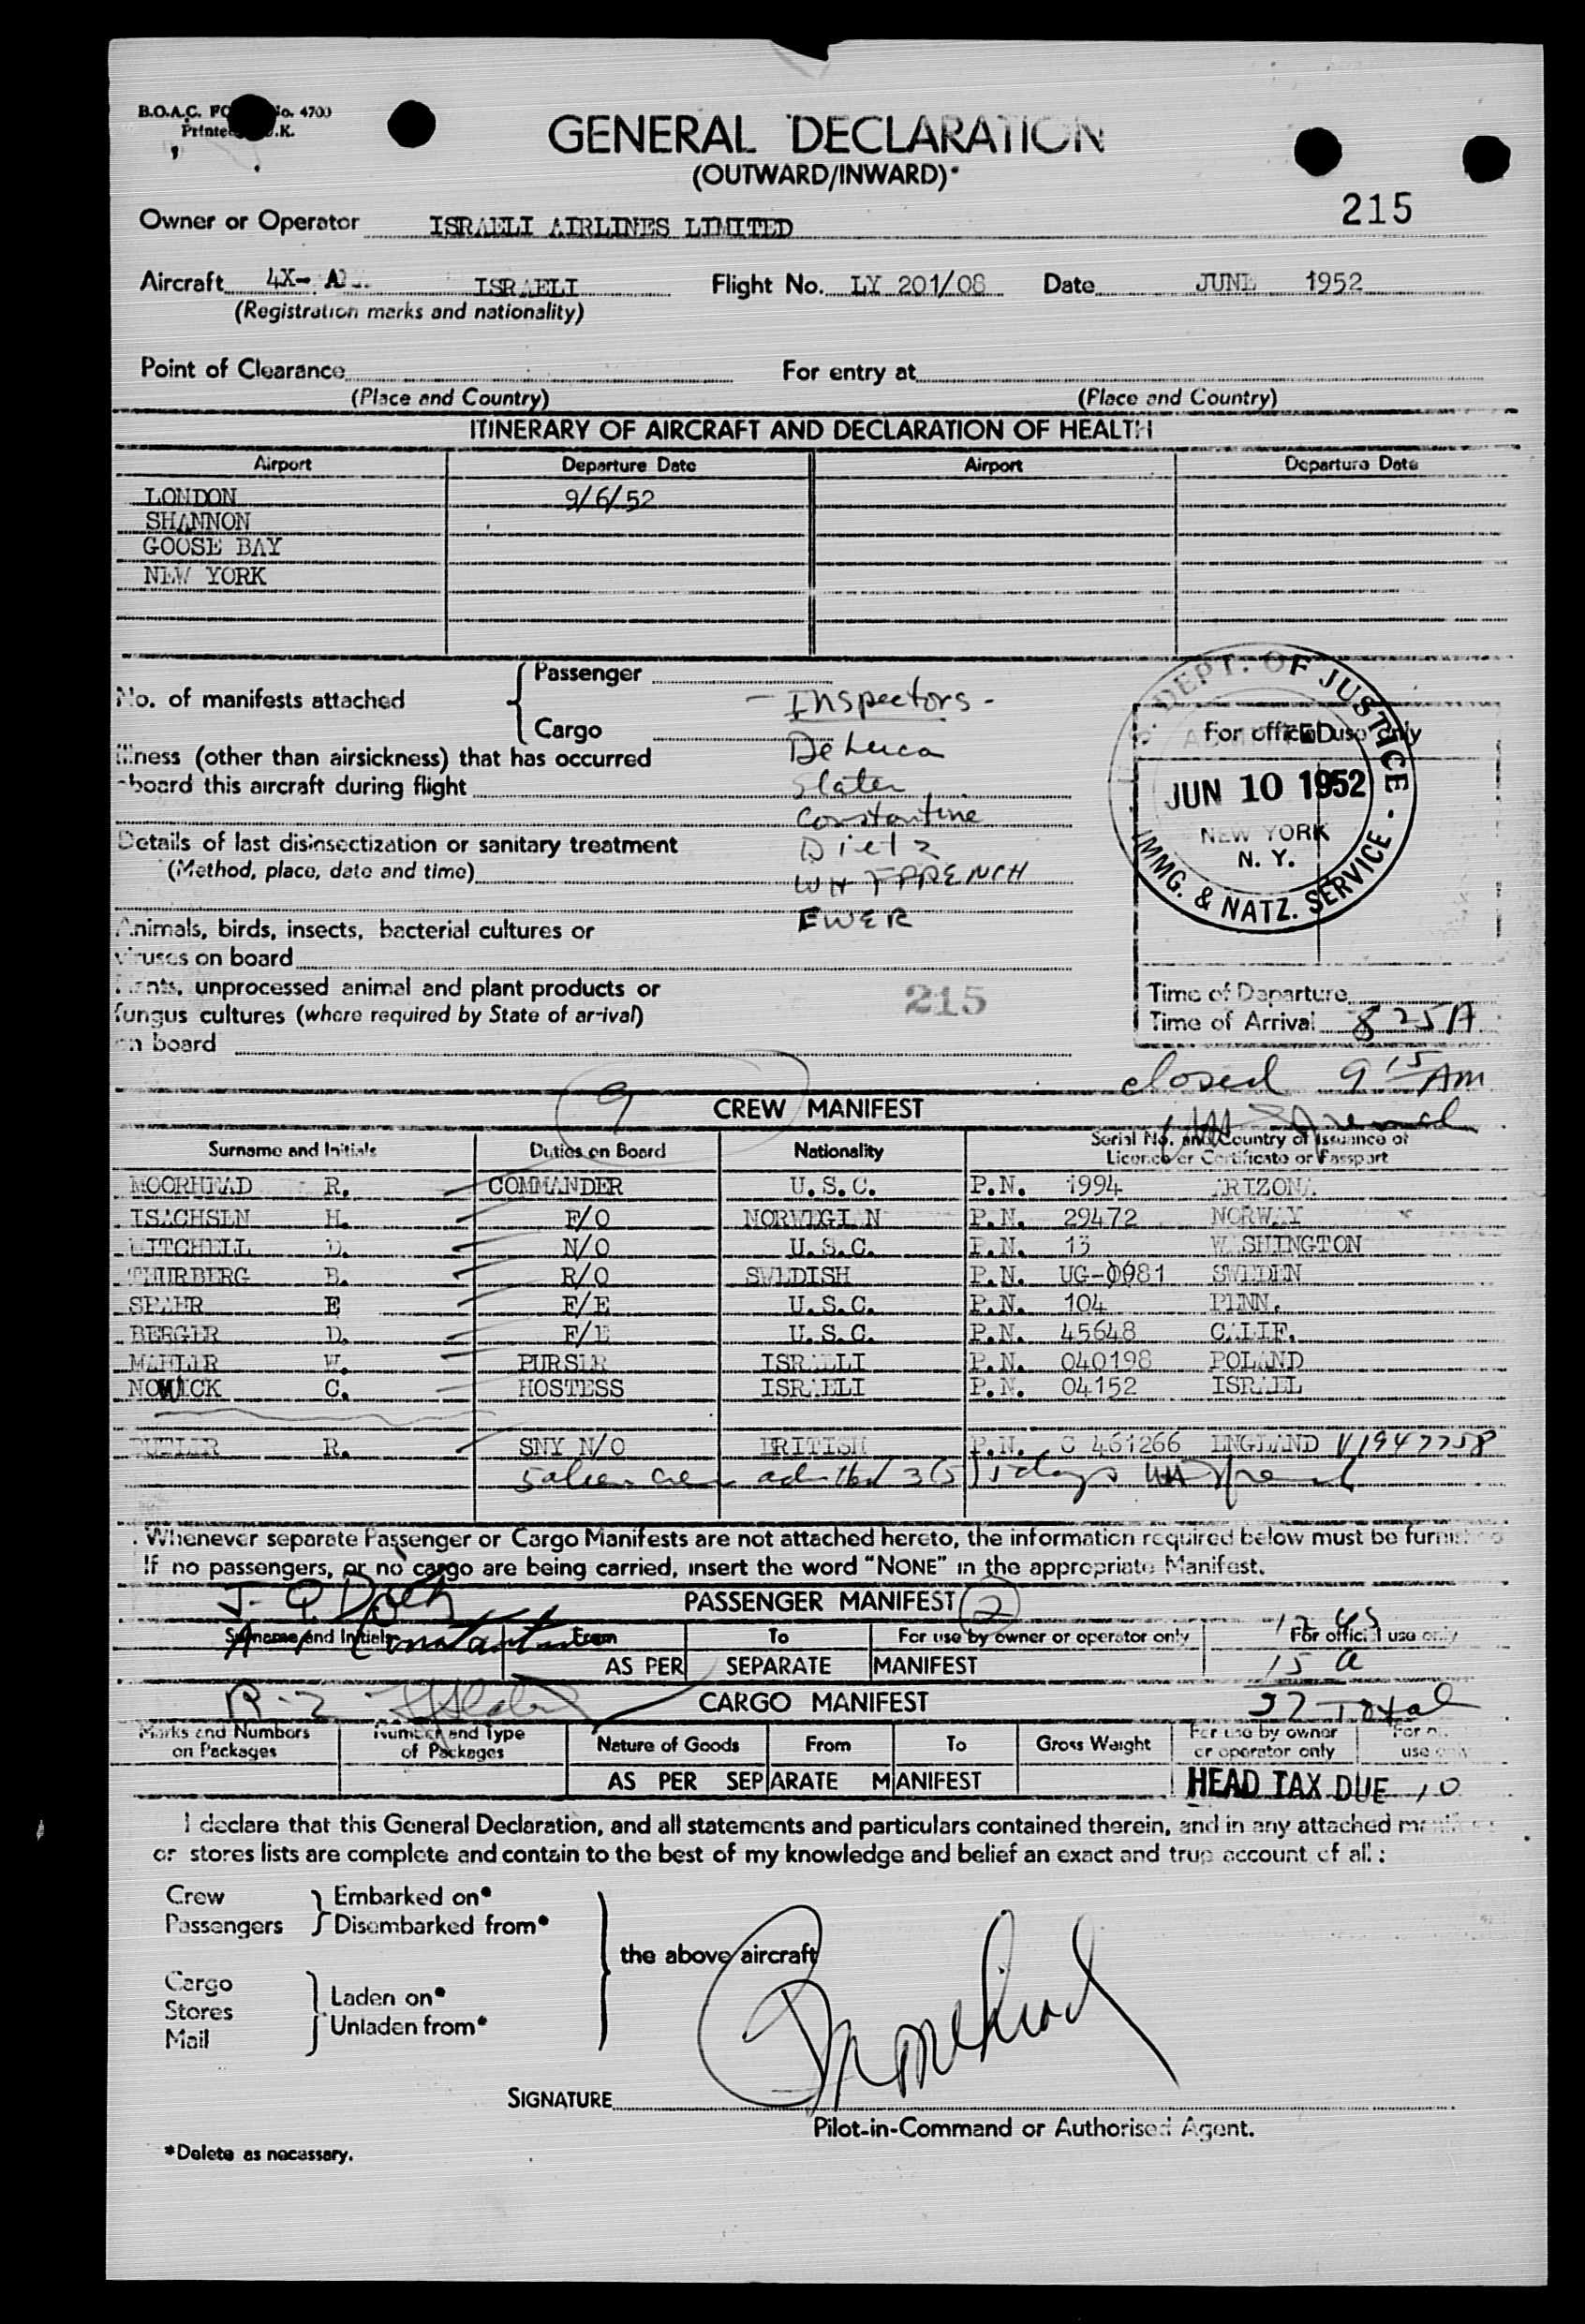 B.O.A.C. No. 4700
GENERAL DECLARATION
(OUTWARD/INWARD)*
215
Owner or Operator ISRAELI AIRLINES LIMITED
Aircraft 4X- ISRAELI Flight No. LY 201/08 Date JUNE 1952
(Registration marks and nationality)
Point of Clearance For entry at
(Place and Country) (Place and Country)
ITINERARY OF AIRCRAFT AND DECLARATION OF HEALTH
Airport Departure Date Airport Departure Date
LONDON 9/6/52
SHANNON
GOOSE BAY
NEW YORK
No. of manifests attached
Passenger
Cargo
- Inspectors -
DeLuca
Slater
Constantine
Dietz
EWER
Illness (other than airsickness) that has occurred
aboard this aircraft during flight
Details of last disinsectization or sanitary treatment
(Method, place, date and time)
Animals, birds, insects, bacterial cultures or
viruses on board
Plants, unprocessed animal and plant products or
fungus cultures (where required by State of arrival)
on board
215
For official use only
U.S. DEPT. OF JUSTICE - IMMG. & NATZ. SERVICE -
ADMITTED
JUN 10 1952
NEW YORK
N. Y.
Time of Departure
Time of Arrival 8 25 A
closed 9 15 AM
9
CREW MANIFEST
Surname and Initials Duties on Board Nationality Serial No. and Country of Issuance of
Licence or Certificate or Passport
MOORHEAD R. COMMANDER U.S.C. P.N. 1994 ARIZONA
ISACHSEN H. F/O NORWEGIAN P.N. 29472 NORWAY
MITCHELL D. N/O U.S.C. P.N. 13 WASHINGTON
THURBERG B. R/O SWEDISH P.N. UG-0081 SWEDEN
SPAHR E F/E U.S.C. P.N. 104 PENN.
BERGER D. F/E U.S.C. P.N. 45648 CALIF.
W. PURSER ISRAELI P.N. 040198 POLAND
NOWICK C. HOSTESS ISRAELI P.N. 04152 ISRAEL
R. SNY N/O BRITISH P.N. C 461266 ENGLAND V1947758
5 alien crew admitted 3(5) 15 days
Whenever separate Passenger or Cargo Manifests are not attached hereto, the information required below must be furnished
If no passengers, or no cargo are being carried, insert the word "NONE" in the appropriate Manifest.
PASSENGER MANIFEST 2
Surname and Initials From To For use by owner or operator only For official use only
AS PER SEPARATE MANIFEST
15 a
CARGO MANIFEST
Total
Marks and Numbers
on Packages
Number and Type
of Packages
Nature of Goods From To Gross Weight
For use by owner
or operator only
AS PER SEPARATE MANIFEST
HEAD TAX DUE 10
I declare that this General Declaration, and all statements and particulars contained therein, and in any attached
or stores lists are complete and contain to the best of my knowledge and belief an exact and true account of all :
Crew
Passengers
Embarked on*
Disembarked from*
the above aircraft
Cargo
Stores
Mail
Laden on*
Unladen from*
SIGNATURE
Pilot-in-Command or Authorised Agent.
*Delete as necessary.